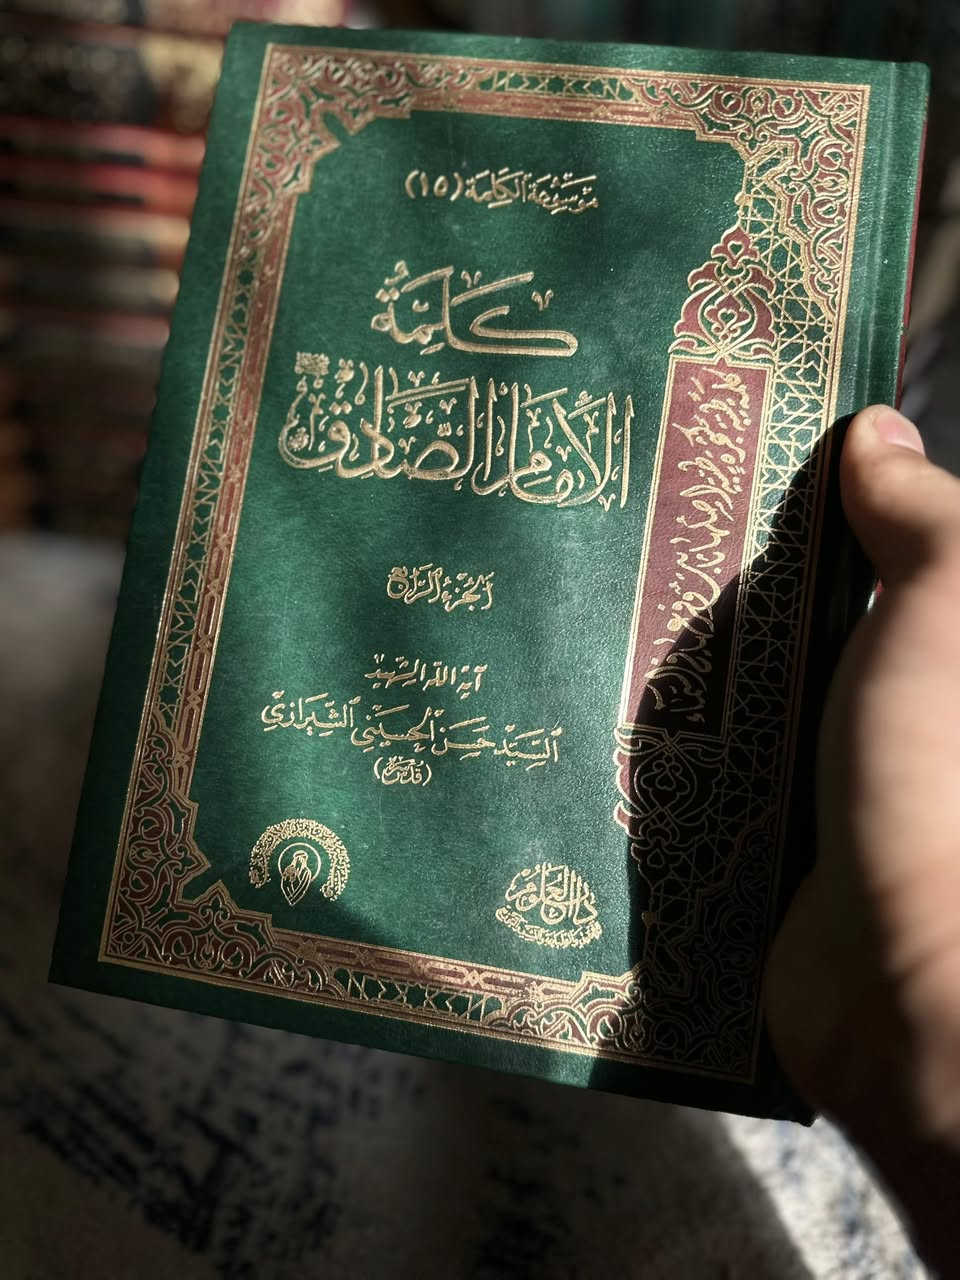 مَوْسُوعَةُ الكَلِمَة (١٥)
كَلِمَةُ
الإِمَامِ الصَّادِقِ
الجُزْءُ الرَّابِع
آية الله الشهيد
السَّيِّد حَسَن الحُسَيْنِي الشِّيرَازِي
(قدس سره)
دار العلوم